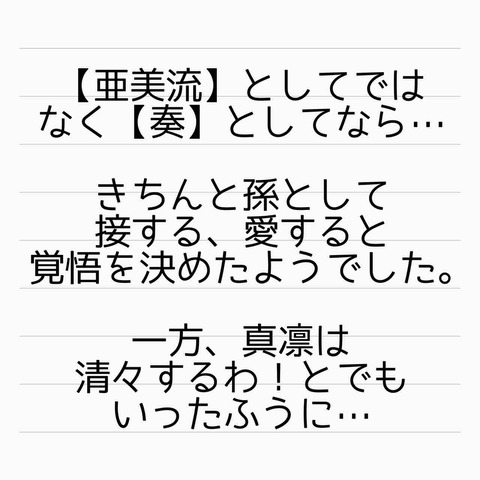 【亜美流】としてでは
なく【奏】としてなら…
きちんと孫として
接する、愛すると
覚悟を決めたようでした。
一方、真凛は
清々するわ！とでも
いったふうに…